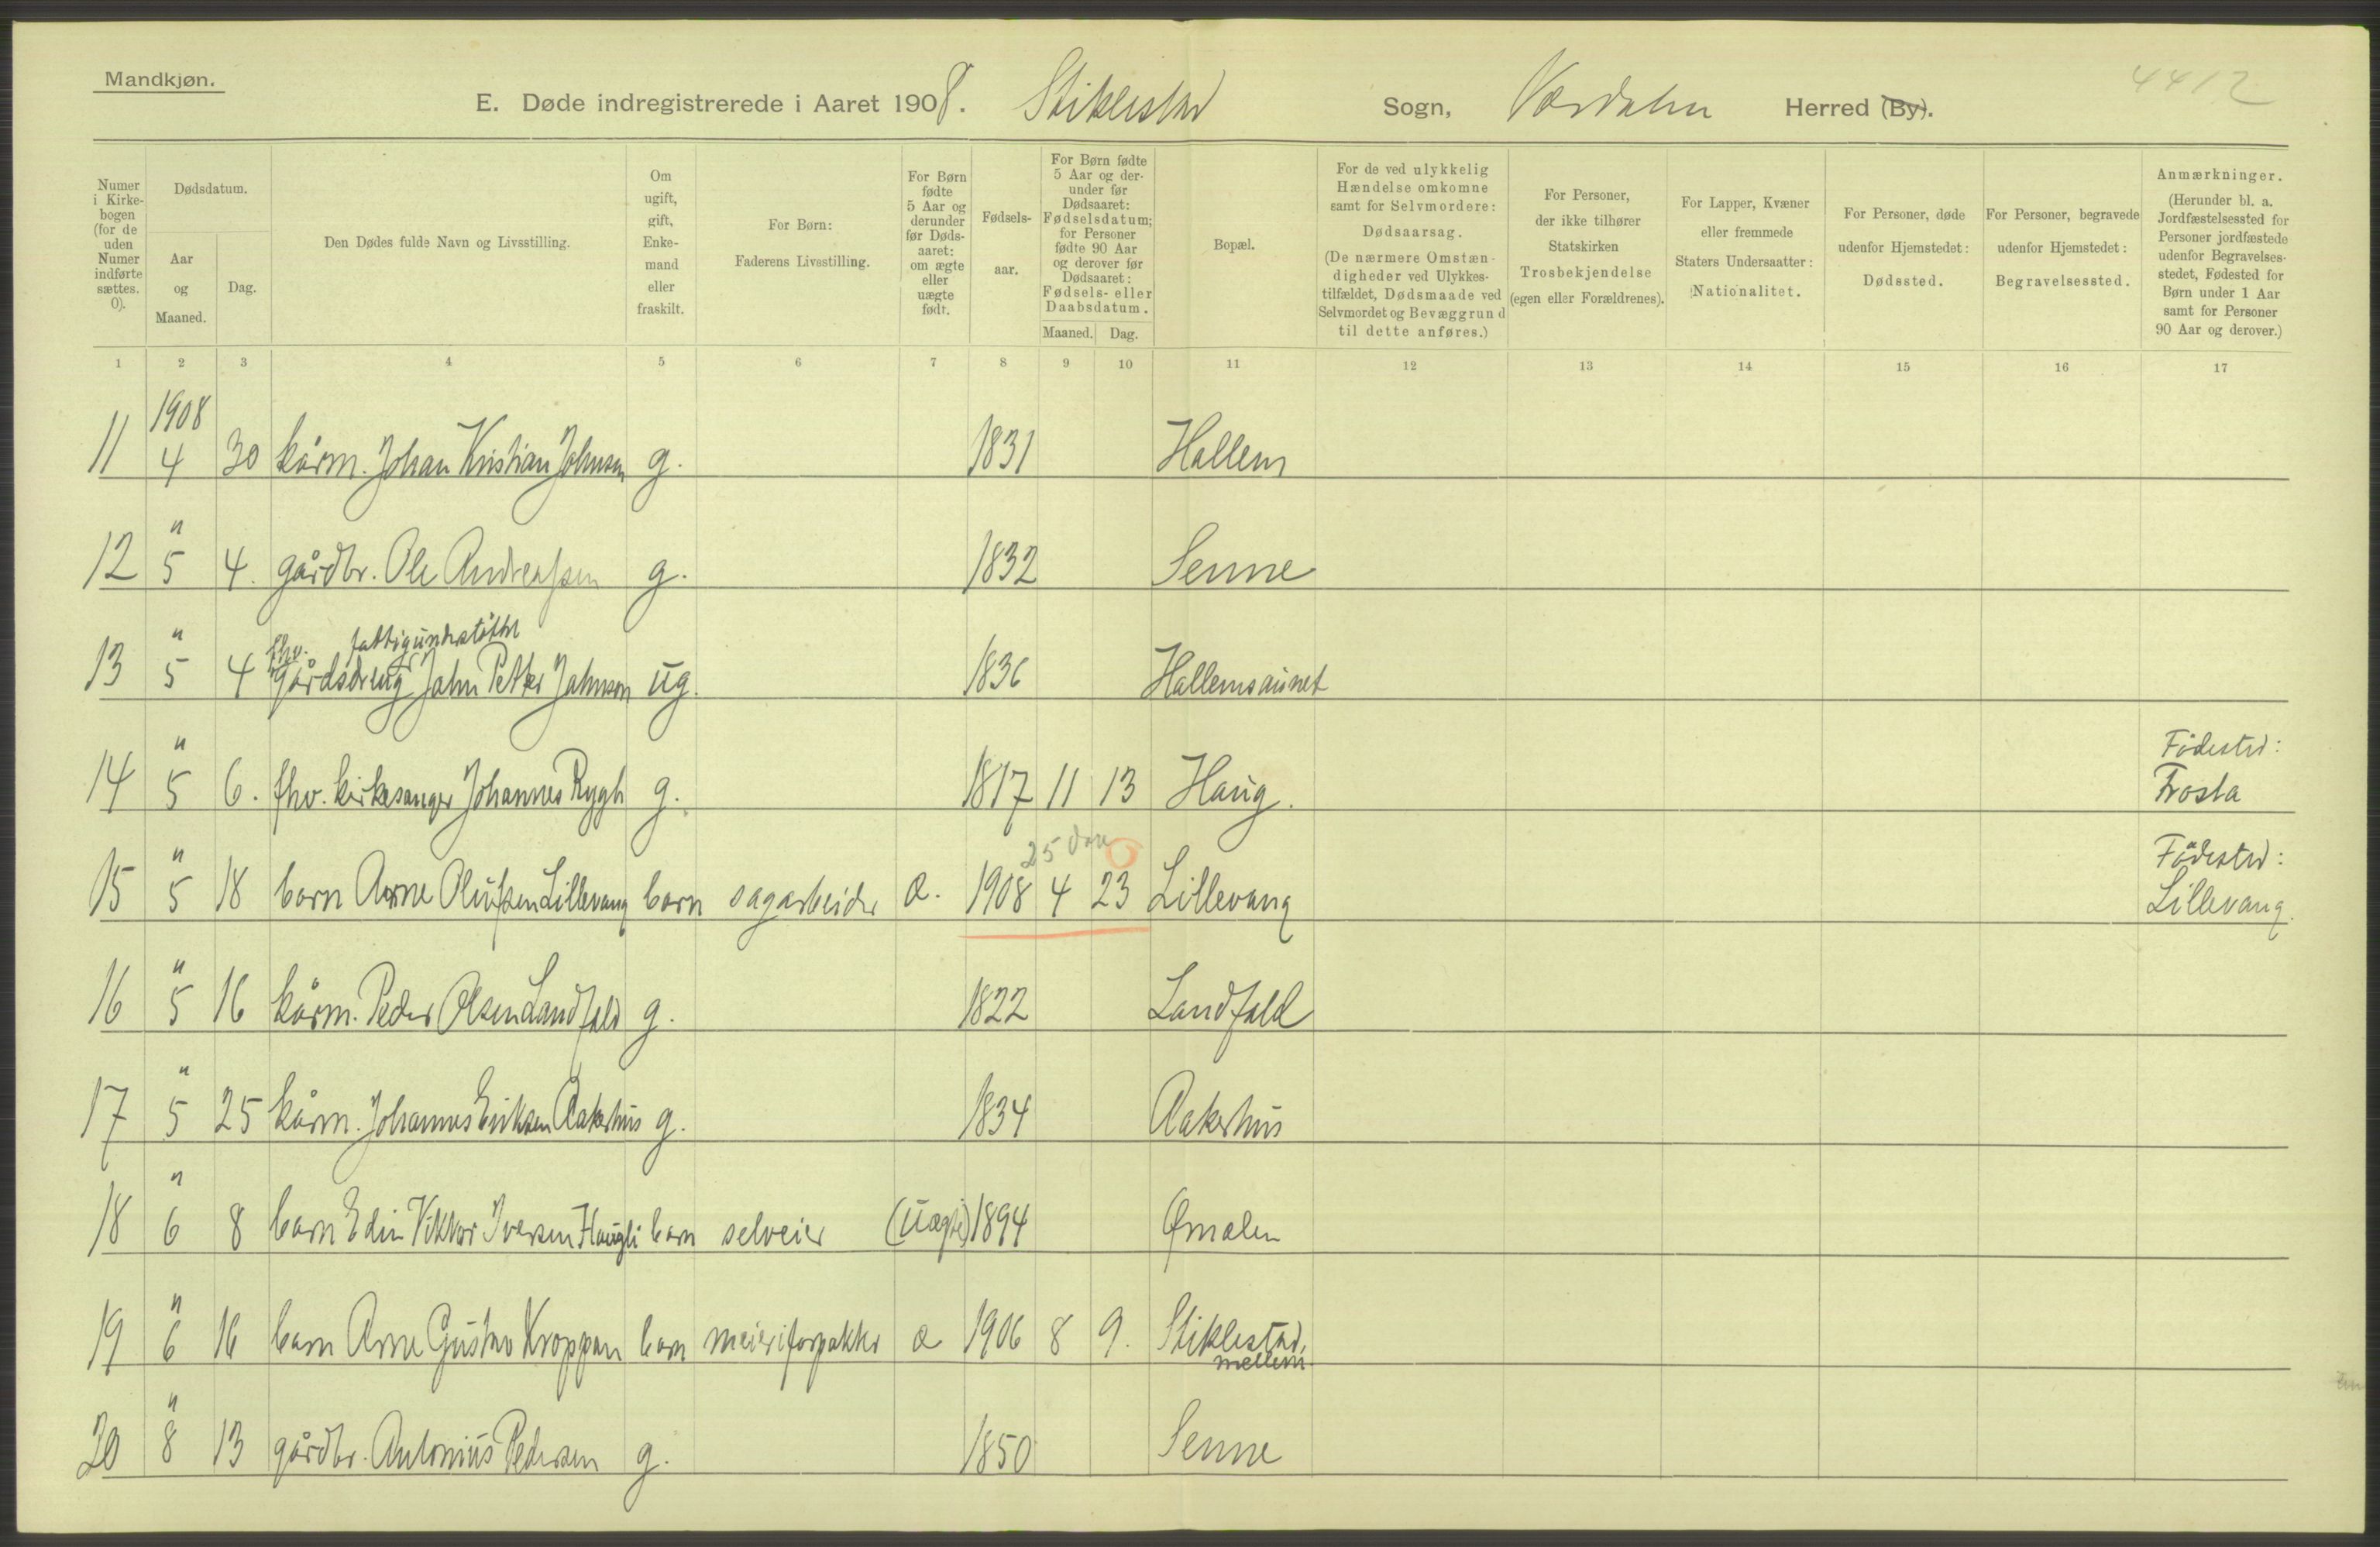 Mandkjøn.
4412
E. Døde indregistrerede i Aaret 1908. Stiklestad Sogn, Værdalen Herred (By).
Numer i Kirkebogen (for de uden Numer indførte sættes. 0).
Dødsdatum.
Aar og Maaned.
Dag.
Den Dødes fulde Navn og Livsstilling.
Om ugift, gift, Enkemand eller fraskilt.
For Børn: Faderens Livsstilling.
For Børn fødte 5 Aar og derunder før Dødsaaret: om ægte eller uægte født.
Fødselsaar.
For Børn fødte 5 Aar og derunder før Dødsaaret: Fødselsdatum; for Personer fødte 90 Aar og derover før Dødsaaret: Fødsels- eller Daabsdatum.
Maaned. Dag.
Bopæl.
For de ved ulykkelig Hændelse omkomne samt for Selvmordere: Dødsaarsag. (De nærmere Omstændigheder ved Ulykkestilfældet, Dødsmaade ved Selvmordet og Bevæggrund til dette anføres.)
For Personer, der ikke tilhører Statskirken Trosbekjendelse (egen eller Forældrenes).
For Lapper, Kvæner eller fremmede Staters Undersaatter: Nationalitet.
For Personer, døde udenfor Hjemstedet: Dødssted.
For Personer, begravede udenfor Hjemstedet: Begravelsessted.
Anmærkninger. (Herunder bl. a. Jordfæstelsessted for Personer jordfæstede udenfor Begravelsesstedet, Fødested for Børn under 1 Aar samt for Personer 90 Aar og derover.)
1 2 3 4 5 6 7 8 9 10 11 12 13 14 15 16 17
1908
11 4 30 kårm. Johan Kristian Johnsen g. 1831 Hallem
"
12 5 4. gårdbr. Ole Andreassen g. 1832 Senne
" fhv. fattigunderstøttet
13 5 4 gårdsdreng John Petter Johnson ug. 1836 Hallemsaunet
" Fødested:
14 5 6. fhv. kirkesanger Johannes Rygh g. 1817 11 13 Haug. Frosta
" 25 dag Fødested:
15 5 18 barn Arne Olufsen Lillevang barn sagarbeider æ. 1908 4 23 Lillevang Lillevang.
"
16 5 16 kårm. Peder Olsen Landfald g. 1822 Landfald
"
17 5 25 kårm. Johannes Eriksen Aakerhus g. 1834 Aakerhus
"
18 6 8 barn Edin Viktor Iversen Haugli barn selveier (uægte) 1894 Ømalen
"
19 6 16 barn Arne Gustav Kroppan barn meieriforpakter æ 1906 8 9. Stiklestad,
mellem
"
20 8 13 gårdbr. Antonius Pedersen g. 1850 Senne